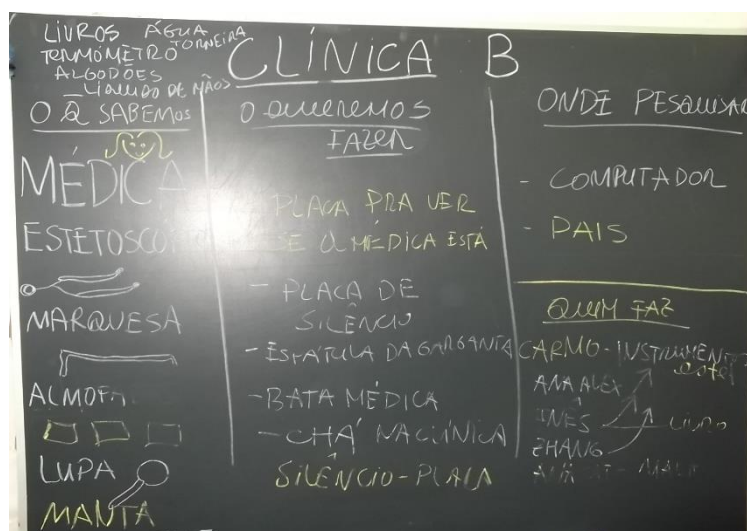 LIVROS ÁGUA
TORNEIRA
TERMÓMETRO
ALGODÕES
LÍQUIDO DE MÃOS
CLÍNICA B
O Q SABEMOS
MÉDICA
ESTETOSCÓ
MARQUESA
ALMOFA
LUPA
MANTA
O QUEREMOS
FAZER
PLACA PRA VER
SE A MÉDICA ESTÁ
- PLACA DE
SILÊNCIO
- ESPÁTULA DA GARGANTA
- BATA MÉDICA
- CHÁ NA CLÍNICA
SILÊNCIO - PLACA
ONDE PESQUISAR
- COMPUTADOR
- PAIS
QUEM FAZ
CARMO - INSTRUMENT
ANA ALEX
INÊS LIVRO
ZHANG